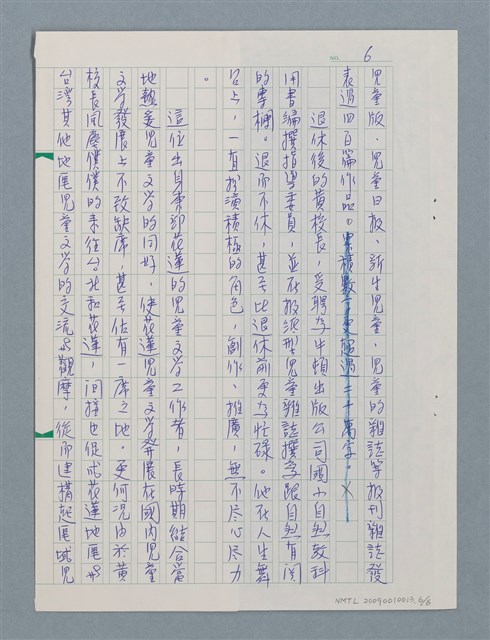 NO. 6
兒童版、兒童日報、新生兒童、兒童的雜誌等報刊雜誌發
表過四百篇作品。累積數字更超過二十萬字。
退休後的黃校長，受聘為牛頓出版公司國小自然教科
用書編撰指導委員，並在報派型兒童雜誌撰寫跟自然有關
的專欄。退而不休，甚至比退休前更為忙碌。他在人生舞
台上，一直扮演積極的角色，創作、推廣，無不盡心盡力
。
這位出身東部花蓮的兒童文學工作者，長時期結合當
地熱愛兒童文學的同好，使花蓮兒童文學發展在國內兒童
文學發展上不致缺席，甚至佔有一席之地。更何況由於黃
校長風塵僕僕的來往台北和花蓮，間接也促成花蓮地區與
台灣其他地區兒童文學的交流與觀摩，從而建構起區域兒
NMTL 20090010013, 6/8